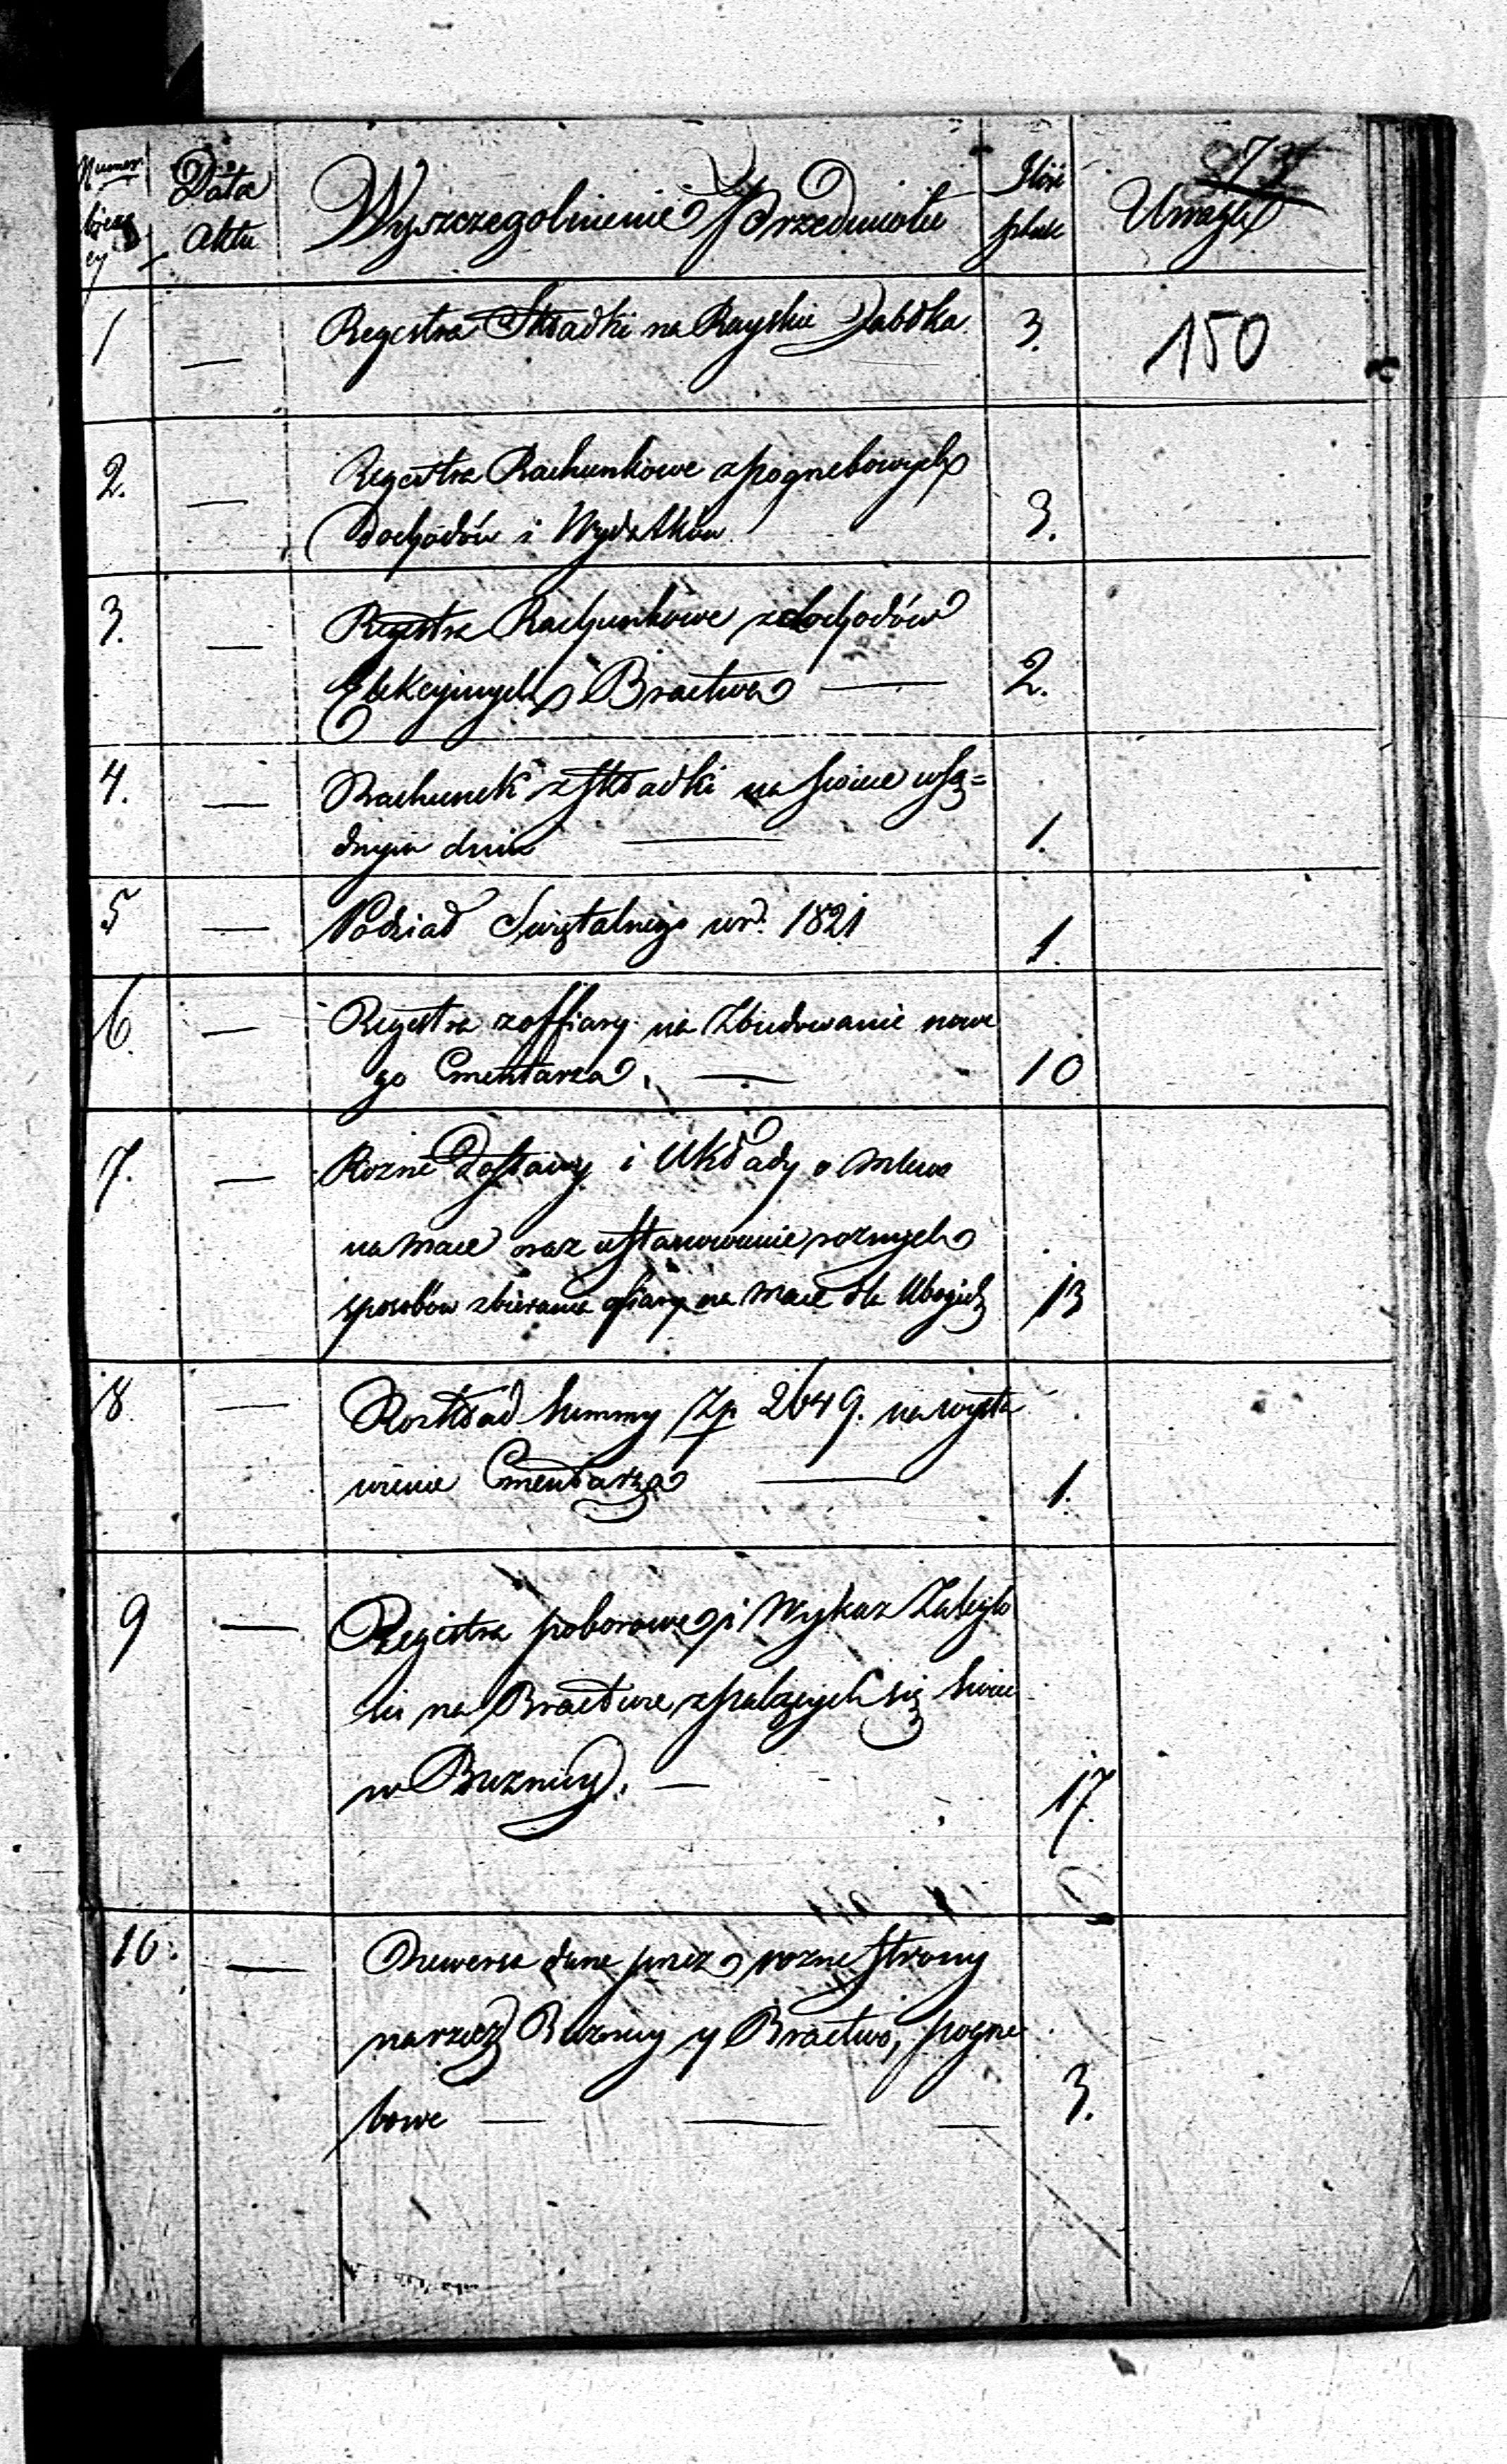 Numer Data Wyszczegolnienie Przedmiotu Ilość Uwagi
bieżący Aktu sztuk
1 — Regestra Składki na Rayskie Jabłka 3.
150
2. — Regestra Rachunkowe z pogrzebowych
Dochodów i Wydatków 3.
3. — Regestra Rachunkowe z dochodów
Elekcyinych i Bractwa — 2.
4. — Rachunek z składki na swiece w są=
dnym dniu — 1.
5 — Podział Swiętalnego w r. 1821 1.
6. — Regestra z offiary na Zbudowanie nowe
go Cmentarza. — 10
7. — Rozne Dostawy i Układy o mlewo
na mace oraz ustanowienie roznych
sposobów zbierania ofiary na mace dla Ubogich 13
8. — Rozkład Summy Zp 2649. na wysta
wienie Cmentarza — 1.
9 — Regestra poborowe i Wykaz Zaległo
sci na Bractwie z palących się swiec
w Buznicy. — 17.
10. — Rewersa dane przez rozne strony
na rzecz Buznicy y Bractwo, pogrze
bowe — — — 3.